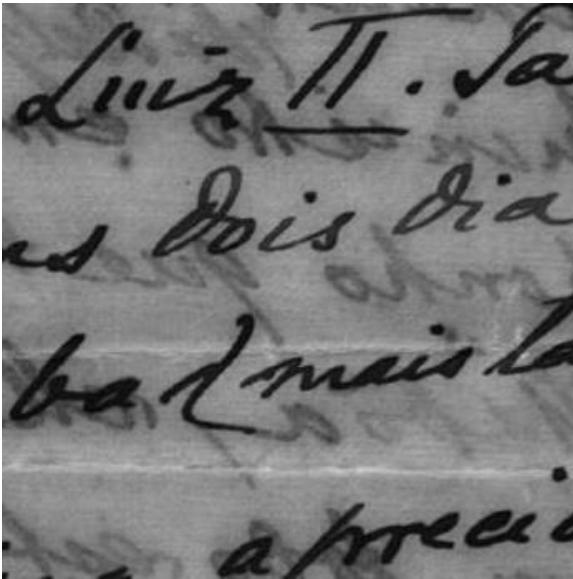 Luiz II. Ja
us dois dia
ba (mais ta
a apreci